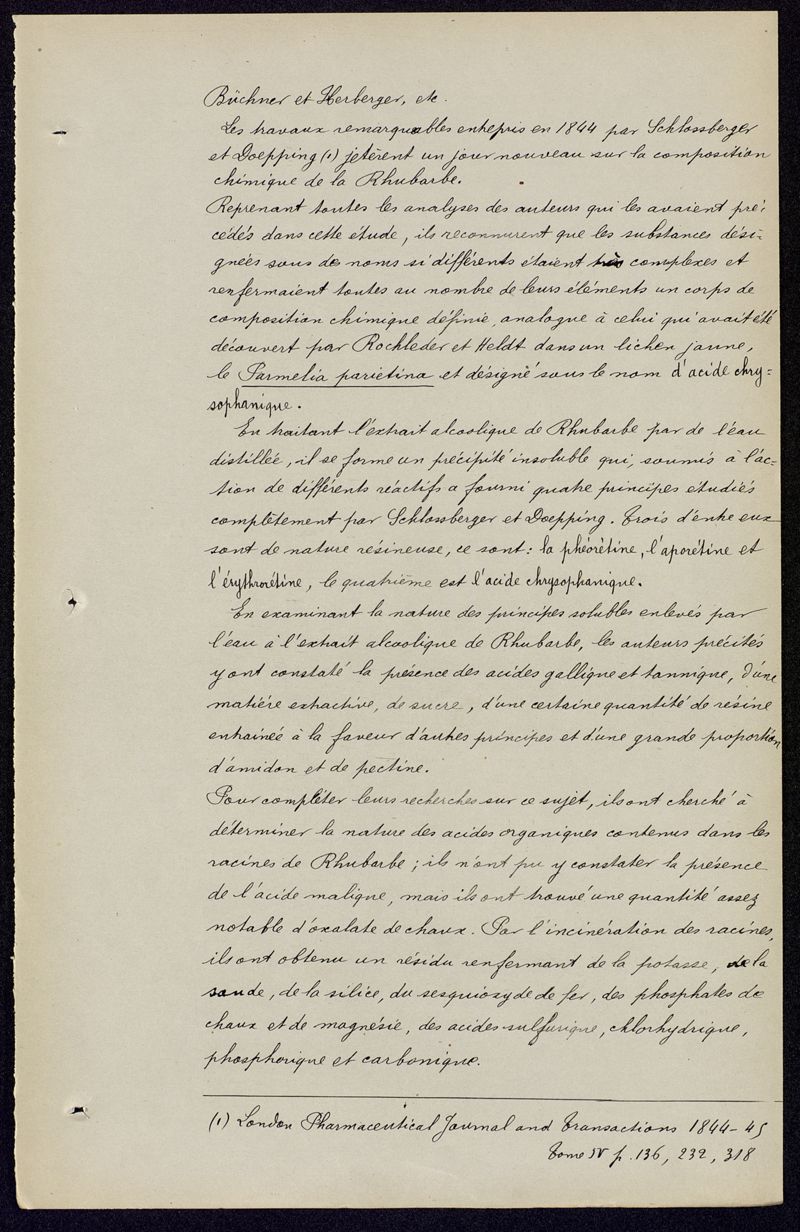 Büchner et Herberger, etc.
Les travaux remarquables entrepris en 1844 par Schlossberger
et Doepping (1) jetèrent un jour nouveau sur la composition
chimique de la Rhubarbe.
Reprenant toutes les analyses des auteurs qui les avaient pré-
cédés dans cette étude, ils reconnurent que les substances dési-
gnées sous de noms si différents étaient très complexes et
renfermaient toutes au nombre de leurs éléments un corps de
composition chimique définie, analogue à celui qui avait été
découvert par Rochleder et Heldt dans un lichen jaune,
le Parmelia parietina et désigné sous le nom d'acide chry-
sophanique.
En traitant l'extrait alcoolique de Rhubarbe par de l'eau
distillée, il se forme un précipité insoluble qui, soumis à l'ac-
tion de différents réactifs a fourni quatre principes étudiés
complètement par Schlossberger et Doepping. Trois d'entre eux
sont de nature résineuse, ce sont : la phéorétine, l'aporétine et
l'érythrorétine, le quatrième est l'acide chrysophanique.
En examinant la nature des principes solubles enlevés par
l'eau à l'extrait alcoolique de Rhubarbe, les auteurs précités
y ont constaté la présence des acides gallique et tannique, d'une
matière extractive, de sucre, d'une certaine quantité de résine
entrainée à la faveur d'autres principes et d'une grande proportion
d'amidon et de pectine.
Pour compléter leurs recherches sur ce sujet, ils ont cherché à
déterminer la nature des acides organiques contenus dans les
racines de Rhubarbe ; ils n'ont pu y constater la présence
de l'acide malique, mais ils ont trouvé une quantité assez
notable d'oxalate de chaux. Par l'incinération des racines,
ils ont obtenu un résidu renfermant de la potasse, de la
soude, de la silice, du sesquioxyde de fer, des phosphates de
chaux et de magnésie, des acides sulfurique, chlorhydrique,
phosphorique et carbonique.
(1) London Pharmaceutical Journal and Transactions 1844-45
Tome IV p. 136, 232, 318